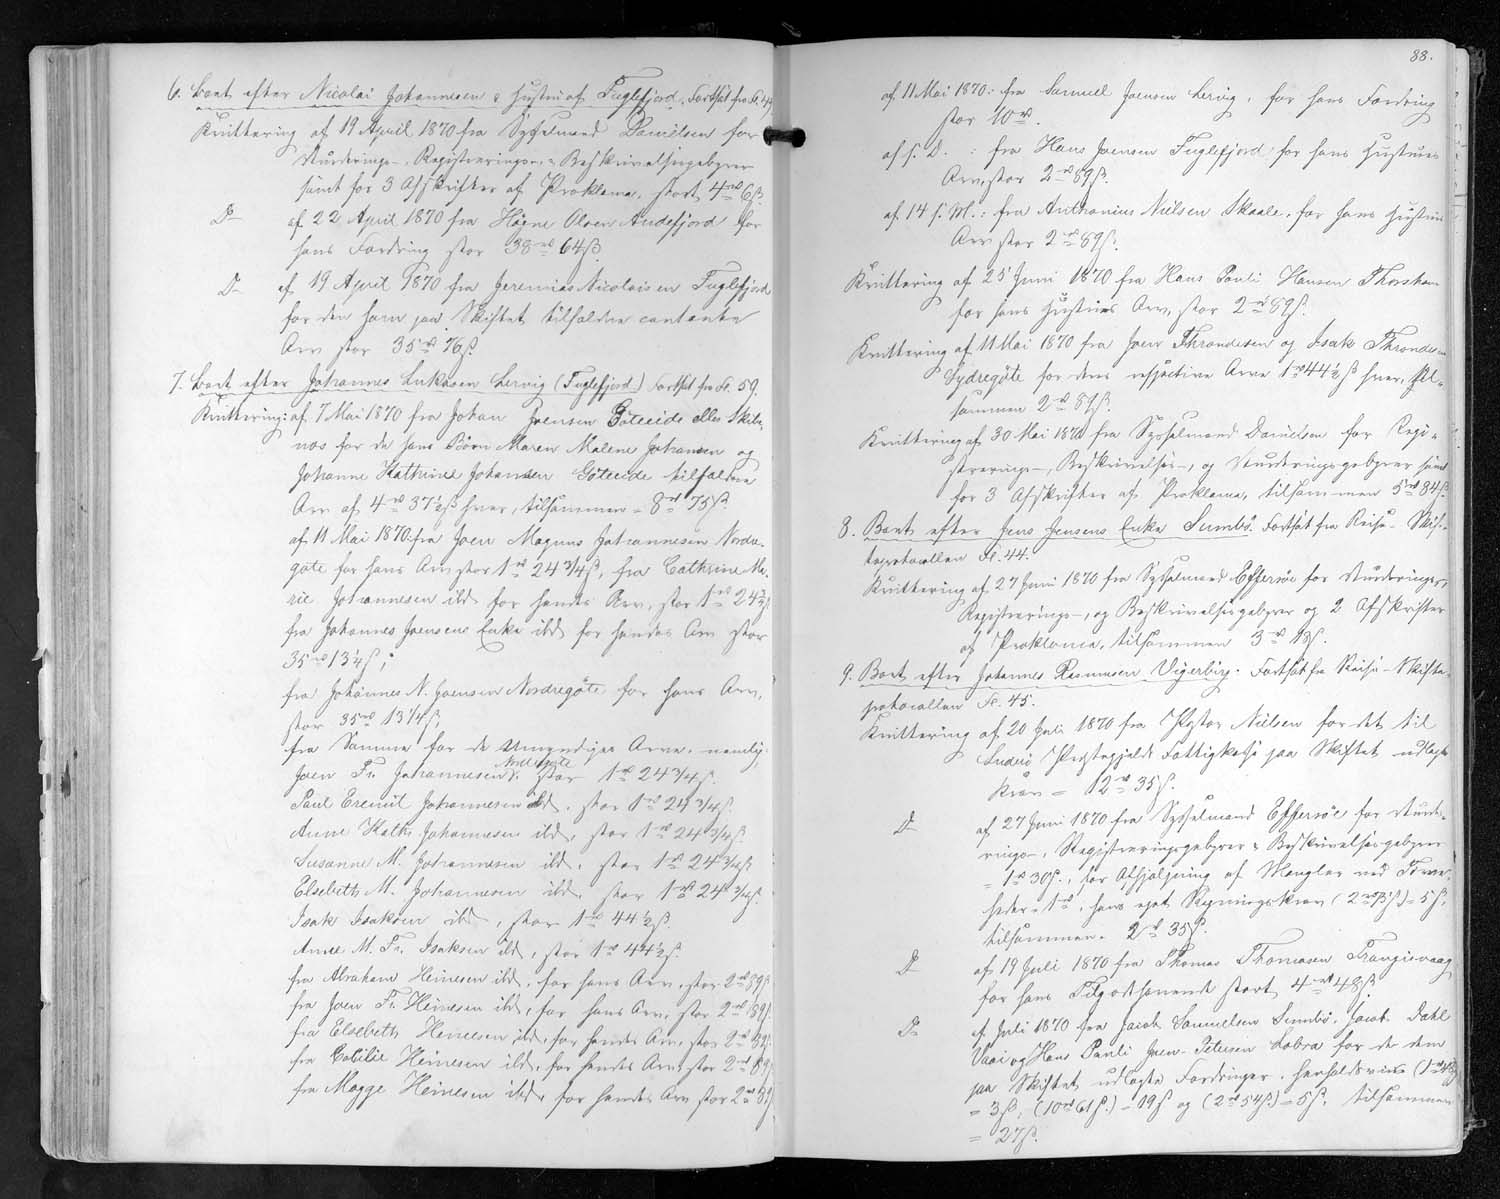 6. Boet efter Nicolai Johannesen & Hustru af Fuglefjord. Fortsat fra Fl. 49
Kvittering af 19 April 1870 fra Sysselmand Danielsen for
Vurderings-, Registrerings- & Beskrivelsesgebyrer
samt for 3 Afskrifter af Proklama, stort 4 rd 6 ß.
Do af 22 April 1870 fra Høgne Olsen Andefjord for
hans Fordring stor 38 rd 64 ß.
Do af 19 April 1870 fra Jeremias Nicolaisen Fuglefjord
for den ham paa Skiftet tilfaldne contante
Arv stor 35 rd 76 ß.
7. Boet efter Johannes Lukasen Lervig (Fuglefjord) Fortsat fra Fl. 59.
Kvittering: af 7 Mai 1870 fra Johan Joensen Göteeide
for de hans Børn Maren Malene Johansen og
Johanne Kathrine Johansen Göteeide tilfaldne
Arv af 4 rd 37½ ß hver, tilsammen = 8 rd 75 ß.
af 11 Mai 1870: fra Joen Magnus Johannesen Nordre-
göte for hans Arv stor 1 rd 24 3/4 ß, fra Cathrine Ma-
rie Johannesen ibd. for hendes Arv, stor 1 rd 24 3/4 ß
fra Johannes Joensens Enke ibd for hendes Arv stor
35 rd 13 1/4 ß;
fra Johannes N. Joensen Nordregöte for hans Arv,
stor 35 rd 13 1/4 ß,
fra Samme for de Umyndiges Arve, nemlig:
Joen Fr. Johannesen Nordregöte stor 1 rd 24 3/4 ß.
Paul Eremit Johannesen ibd. stor 1 rd 24 3/4 ß.
Anne Kath. Johannesen ibd, stor 1 rd 24 3/4 ß.
Susanne M. Johannesen ibd. stor 1 rd 24 3/4 ß
Elsebeth M. Johannesen ibd. stor 1 rd 24 3/4 ß.
Isak Isaksen ibd, stor 1 rd 44 ½ ß.
Anne M. Fr. Isaksen ibd, stor 1 rd 44½ ß.
fra Abraham Heinesen ibd, for hans Arv, stor 2 rd 89 ß
fra Joen Fr. Heinesen ibd, for hans Arv, stor 2 rd 89 ß
fra Elsebeth Heinesen ibd, for hendes Arv, stor 2 rd 89 ß
fra Cecilie Heinesen ibd, for hendes Arv, stor 2 rd 89 ß
fra Magge Heinesen ibd, for hendes Arv stor 2 rd 89 ß
88.
af 11 Mai 1870: fra Samuel Joensen Lervig, for hans Fordring
stor 10 rd.
af s. D. : fra Hans Joensen Fuglefjord for hans Hustrues
Arv, stor 2 rd 89 ß.
af 14 s. M.: fra Anthonius Nielsen Skaale, for hans Hustrues
Arv stor 2 rd 89 ß.
Kvittering af 25 Juni 1870 fra Hans Pauli Hansen Thorshavn
for hans Hustrues Arv, stor 2 rd 89 ß.
Kvittering af 11 Mai 1870 fra Joen Throndesen og Isak Throndesen
Sydregöte for deres respective Arve 1 rd 44½ ß hver, til-
sammen 2 rd 89 ß.
Kvittering af 30 Mai 1870 fra Sysselmand Danielsen for Regi-
strerings-, Beskrivelses-, og Vurderingsgebyrer samt
for 3 Afskrifter af Proklama, tilsammen 5 rd 84 ß.
8. Boet efter Jens Jensens Enke Sumbö. Fortsat fra Reise-Skif-
teprotocollen Fl. 44.
Kvittering af 27 Juni 1870 fra Sysselmand Effersöe for Vurderings-,
Registrerings-, og Beskrivelsesgebyrer og 2 Afskrifter
af Proklama, tilsammen 3 rd 18 ß.
9. Boet efter Johannes Rasmussen Vigerbirg. Fortsat fra Reise-Skifte-
protocollen Fl. 45.
Kvittering af 20 Juli 1870 fra Pastor Nielsen for det til
Suderö Præstegjelds Fattigkasse paa Skiftet udlagte
Krav = 12 rd 35 ß.
Do af 27 Juni 1870 fra Sysselmand Effersöe for Vurde-
rings-, Registreringsgebyrer & Beskrivelsesgebyrer
= 1 rd 30 ß., for Afhjælpning af Mangler ved
1 rd, hans eget Regningskrav = 5 ß,
tilsammen = 2 rd 35 ß.
Do af 19 Juli 1870 fra Thomas Thomasen Frangisvaag
for hans Tilgodehavende stort 4 rd 48 ß.
Do af Juli 1870 fra Jacob Samuelsen Sumbö, Jacob Dahl
Vaai og Hans Pauli Joen-Petersen Lobra for de dem
paa Skiftet udlagte Fordringer, henholdsvis (1 rd 48 ß)
= 3 ß, (10 rd 61 ß.) = 19 ß og (2 rd 54 ß.) = 5 ß, tilsammen
= 27 ß.